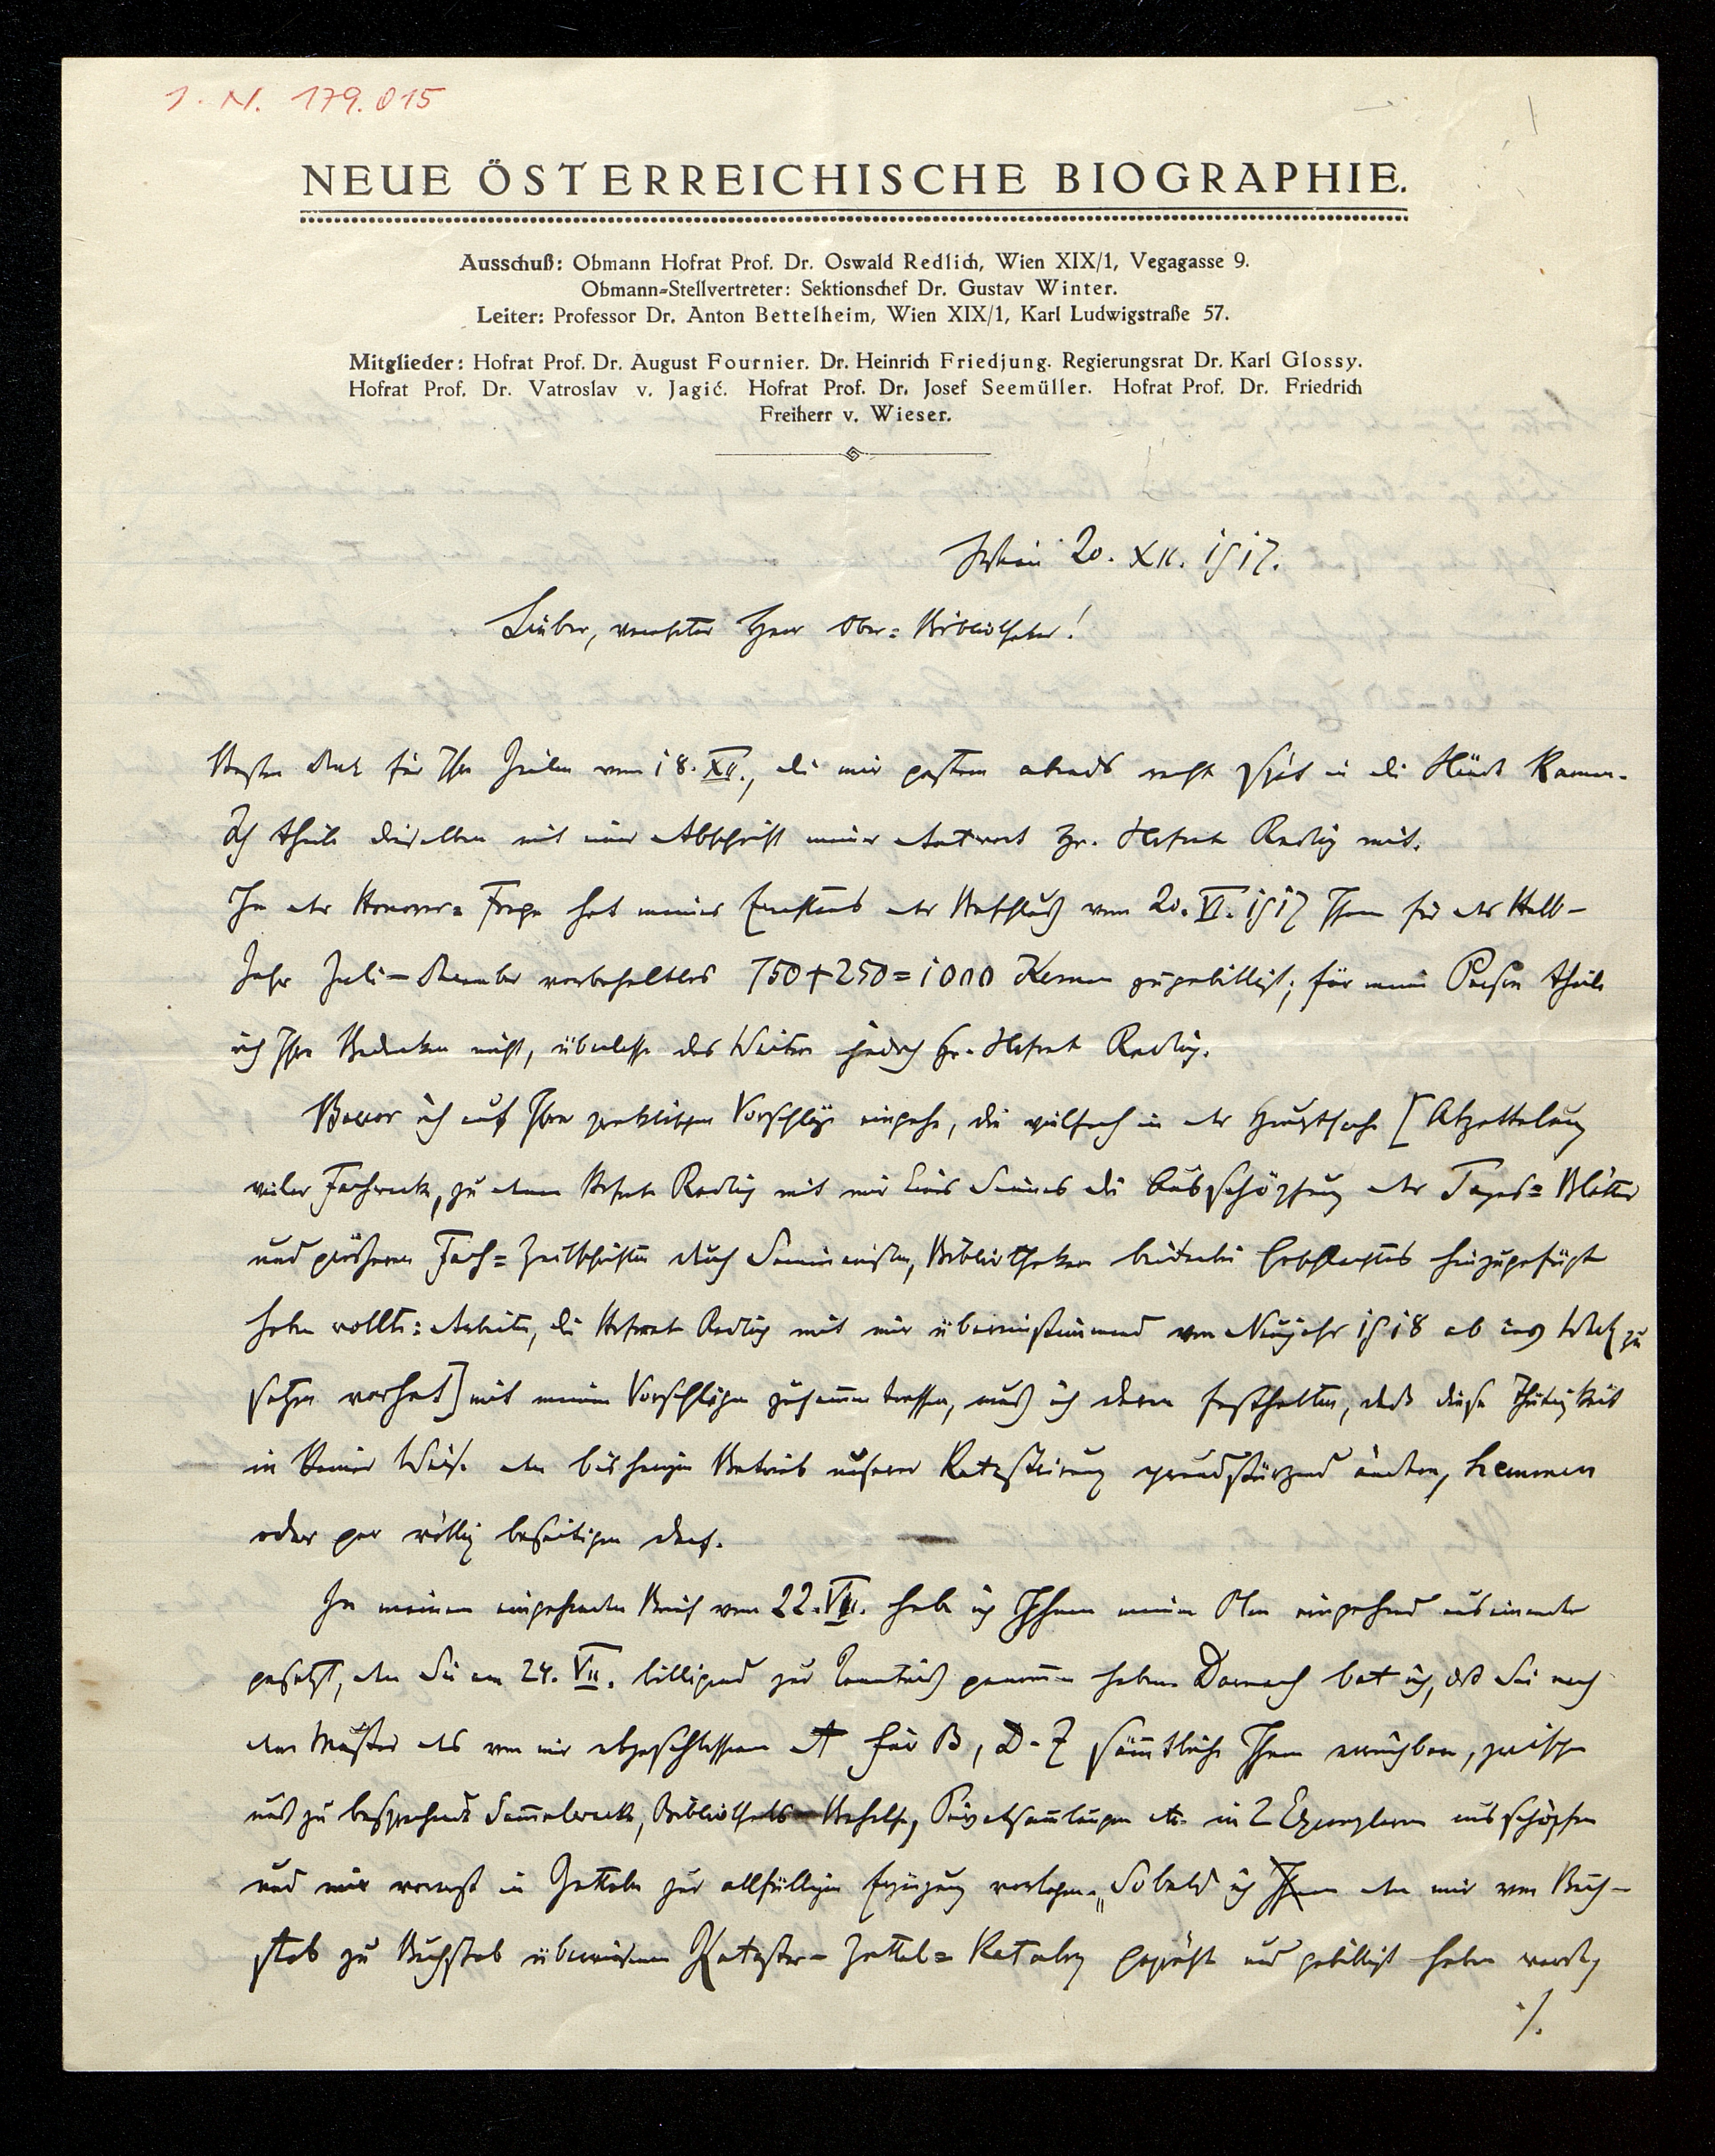 I. N. 179.015
NEUE ÖSTERREICHISCHE BIOGRAPHIE.
Ausschuß: Obmann Hofrat Prof. Dr. Oswald Redlich, Wien XIX/1, Vegagasse 9.
Obmann-Stellvertreter: Sektionschef Dr. Gustav Winter.
Leiter: Professor Dr. Anton Bettelheim, Wien XIX/1, Karl Ludwigstraße 57.
Mitglieder: Hofrat Prof. Dr. August Fournier. Dr. Heinrich Friedjung. Regierungsrat Dr. Karl Glossy.
Hofrat Prof. Dr. Vatroslav v. Jagić. Hofrat Prof. Dr. Josef Seemüller. Hofrat Prof. Dr. Friedrich
Freiherr v. Wieser.
Wien 20. XII. 1917.
Lieber, verehrter Herr Ober=Bibliothekar!
Besten Dank für Ihre Zeilen vom 18. XII., die mir gestern abends recht spät in die Hände kamen.
Ich theile dieselben mit einer Abschrift meiner Antwort Hr. Hofrat Redlich mit.
In der Honorar=Frage hat meines Erachtens der Beschluß vom 20. VI. 1917 Ihnen für das Halb-
Jahr Juli–December vorbehaltlos 750+250=1000 Kronen zugebilligt; für meine Person theile
ich Ihre Bedenken nicht, überlasse das Weitere jedoch Hr. Hofrat Redlich.
Bevor ich auf Ihre praktischen Vorschläge eingehe, die vielfach in der Hauptsache [Abzettelung
vieler Fachwerke, zu denen Hofrat Redlich mit mir Eines Sinnes die Ausschöpfung der Tages=Blätter
und größeren Fach=Zeitschriften durch Seminaristen, Bibliothekare beiderlei Geschlechtes hinzugefügt
haben wollte: Arbeiten, die Hofrat Redlich mit mir übereinstimmend von Neujahr 1918 ab ins Werk zu
setzen vorhat] mit meinen Vorschlägen zusammentreffen, muß ich daran festhalten, daß diese Thätigkeit
in keiner Weise den bisherigen Betrieb unserer Katastrirung grundstürzend ändern, hemmen
oder gar völlig beseitigen darf.
In meinem eingehenden Brief vom 22. VII. habe ich Ihnen meinen Plan eingehend auseinander
gesetzt, den Sie am 24. VII. billigend zur Kenntniß genommen haben. Darnach bat ich, daß Sie nach
dem Muster des von mir abgeschlossenen A für B, D-Z sämmtliche Ihnen erreichbare, zwischen
uns zu besprechende Sammelwerke, Bibliotheks-Behelfe, Privatsammlungen etc. in 2 Exemplaren ausschöpfen
und mir vorerst in Zetteln zur allfälligen Ergänzung vorlegen. Sobald ich den mir von Buch-
stab zu Buchstab überwiesenen Kataster-Zettel=Katalog geprüft und gebilligt haben werde,
./.